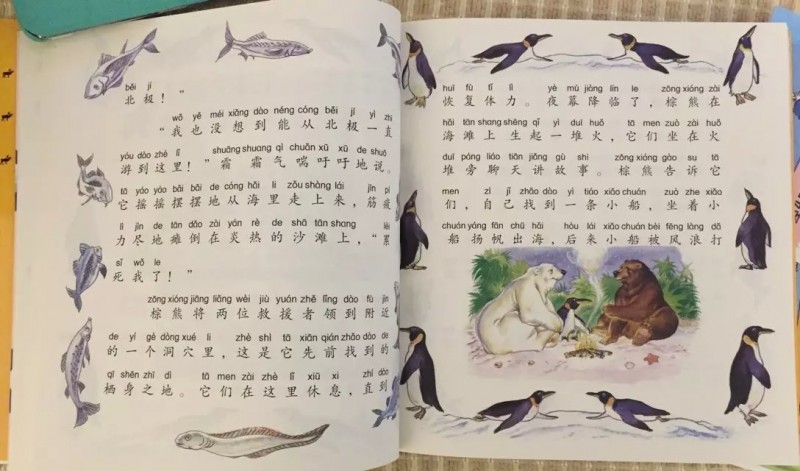 běi jí
北极！”
wǒ yě méi xiǎng dào néng cóng běi jí yì zhí
“我也没想到能从北极一直
yóu dào zhè lǐ shuāng shuang qì chuǎn xū xū de shuō
游到这里！”霜霜气喘吁吁地说。
tā yáo yáo bǎi bǎi de cóng hǎi lǐ zǒu shàng lái jīn pí
它摇摇摆摆地从海里走上来，筋疲
lì jìn de tān dǎo zài yán rè de shā tān shang lèi
力尽地瘫倒在炎热的沙滩上，“累
sǐ wǒ le
死我了！”
zōng xióng jiāng liǎng wèi jiù yuán zhě lǐng dào fù jìn
棕熊将两位救援者领到附近
de yí gè dòng xué lǐ zhè shì tā xiān qián zhǎo dào de
的一个洞穴里，这是它先前找到的
qī shēn zhī dì tā men zài zhè lǐ xiū xi zhí dào
栖身之地。它们在这里休息，直到
huī fù tǐ lì yè mù jiàng lín le zōng xióng zài
恢复体力。夜幕降临了，棕熊在
hǎi tān shang shēng qǐ yì duī huǒ tā men zuò zài huǒ
海滩上生起一堆火，它们坐在火
duī páng liáo tiān jiǎng gù shi zōng xióng gào su tā
堆旁聊天讲故事。棕熊告诉它
men zì jǐ zhǎo dào yì tiáo xiǎo chuán zuò zhe xiǎo
们，自己找到一条小船，坐着小
chuán yáng fān chū hǎi hòu lái xiǎo chuán bèi fēng làng dǎ
船扬帆出海，后来小船被风浪打